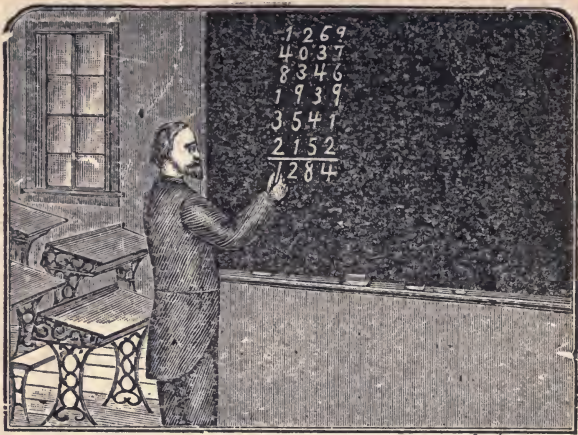 1269
4037
8346
1939
3541
2152
1284